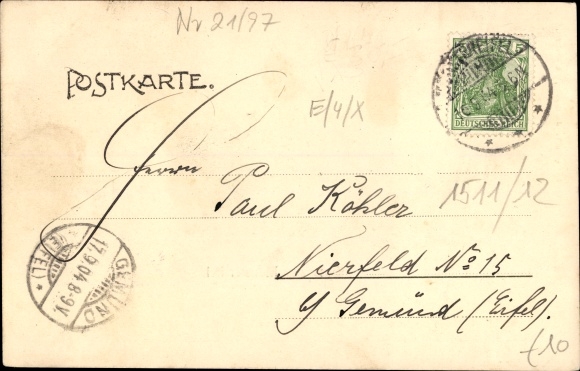 Nr 21/97
POSTKARTE.
E/4/X
DEUTSCHES REICH
Herrn
Paul Köhler
1511/12
Nierfeld No 15
b/ Gemünd (Eifel).
GEMÜND
17.9.04.8-9V.
(EIFEL)
€10